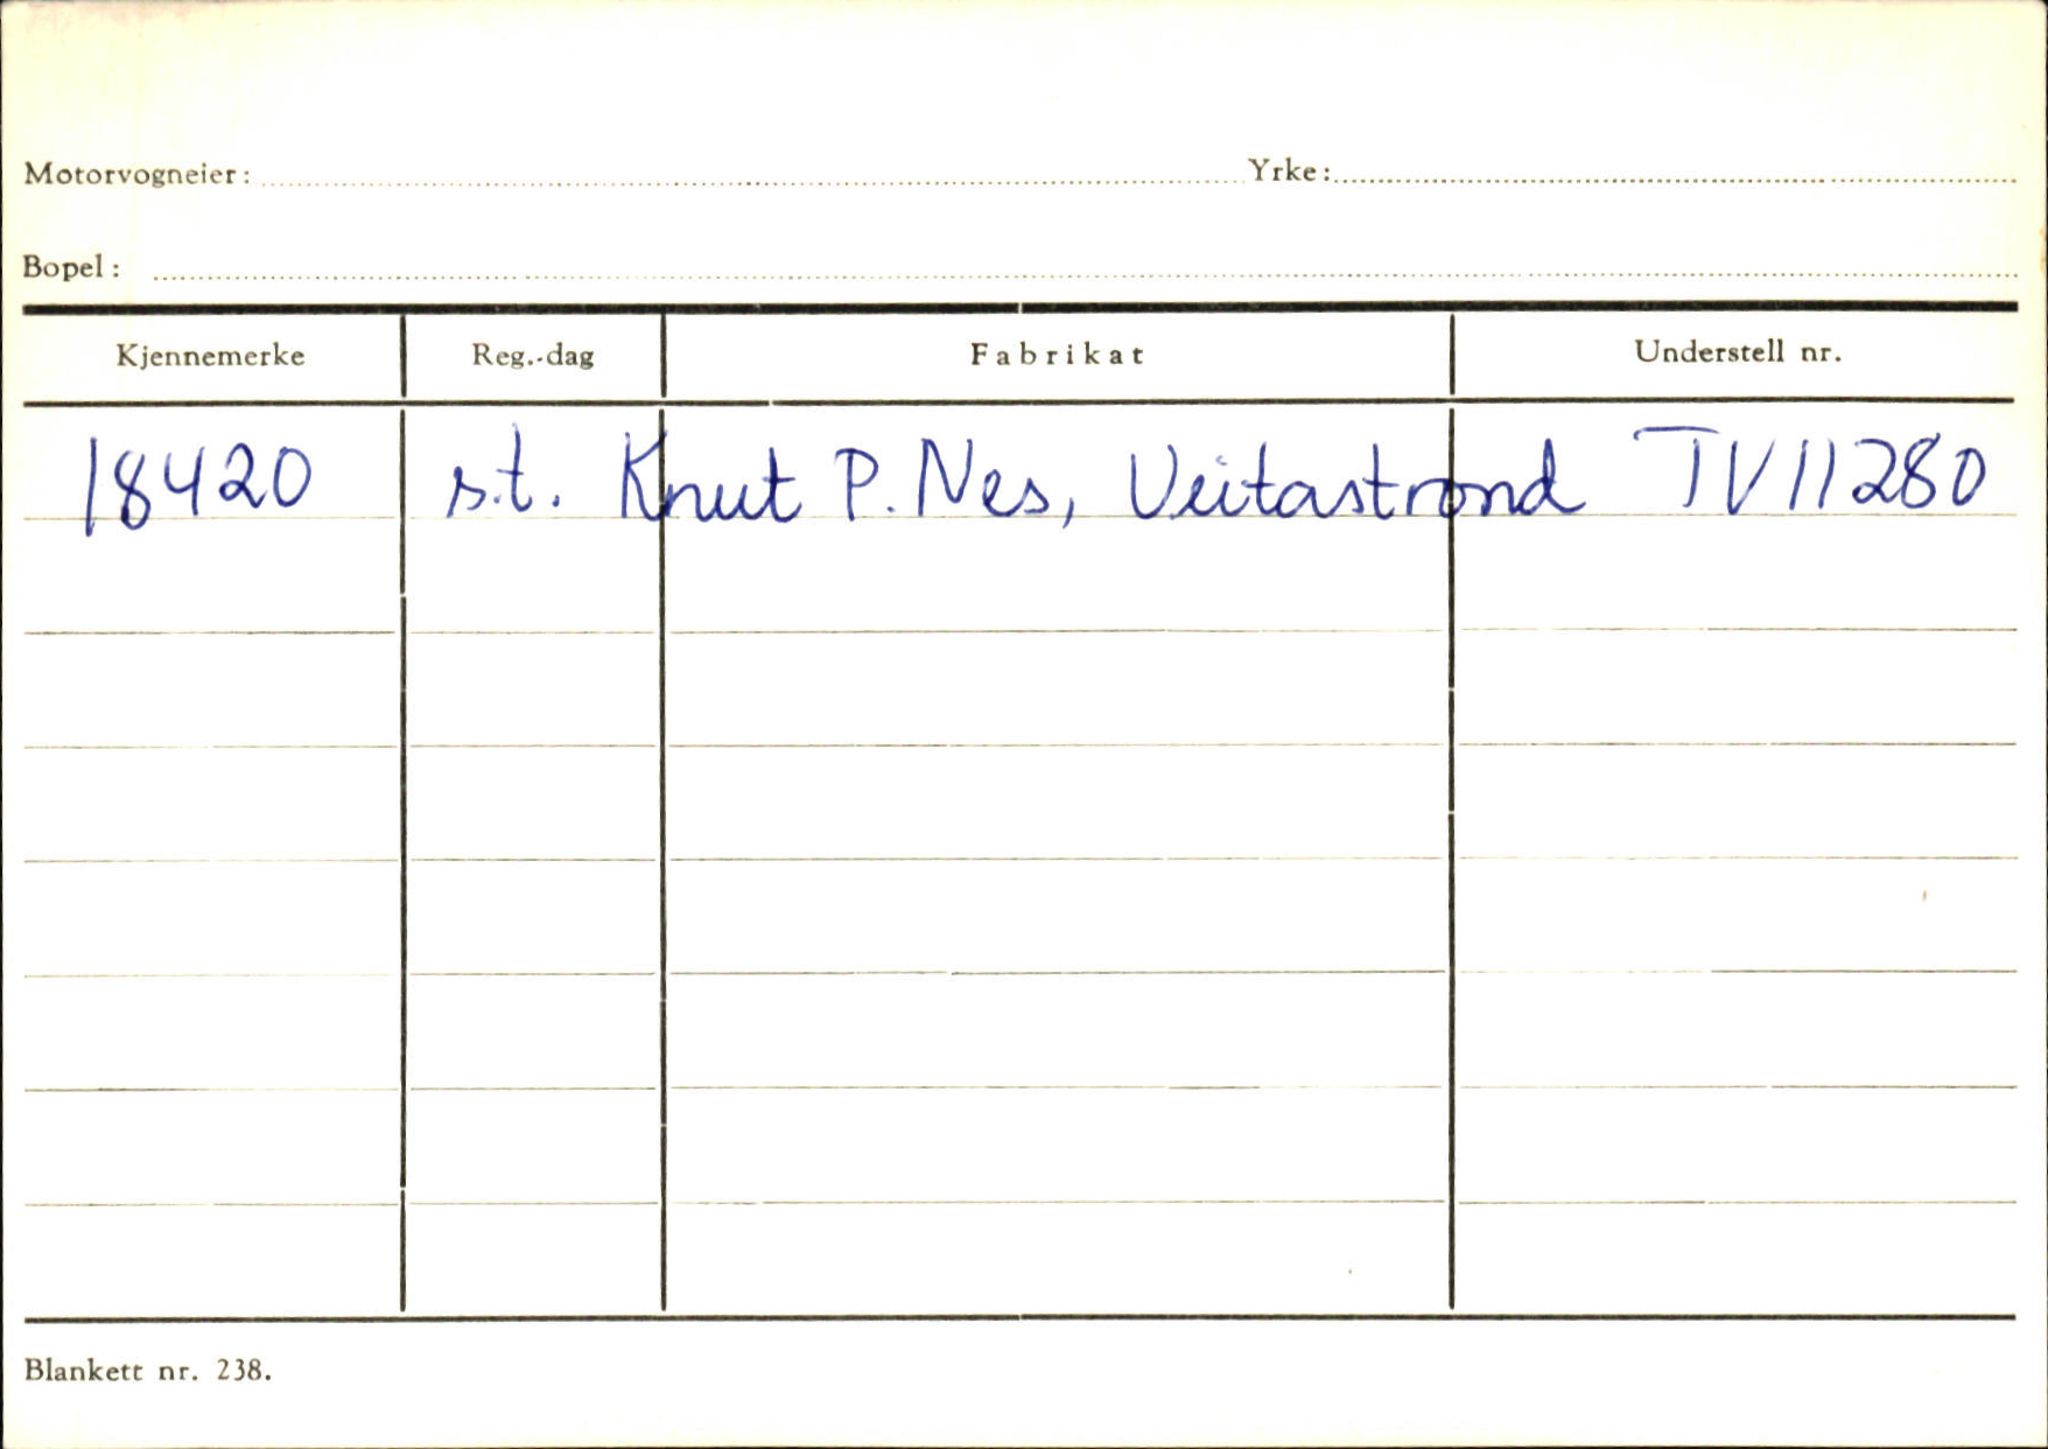 Motorvogneier: Yrke:
Bopel:
Kjennemerke Reg.-dag Fabrikat Understell nr.
18420 s.t. Knut P. Nes, Veitastrond TV11280
Blankett nr. 238.